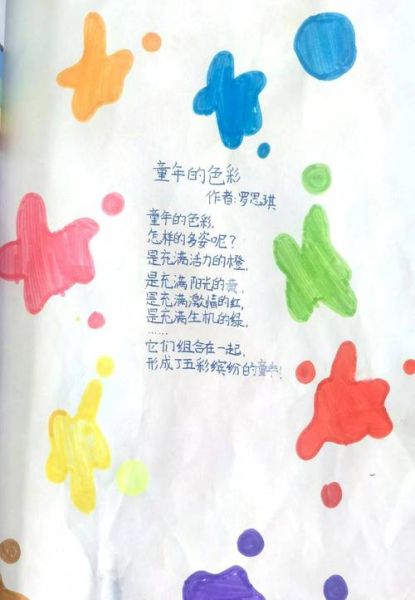 童年的色彩
作者:罗思琪
童年的色彩,
怎样的多姿呢?
是充满活力的橙,
是充满阳光的黄,
是充满激情的红,
是充满生机的绿,
……
它们组合在一起,
形成了五彩缤纷的童年!